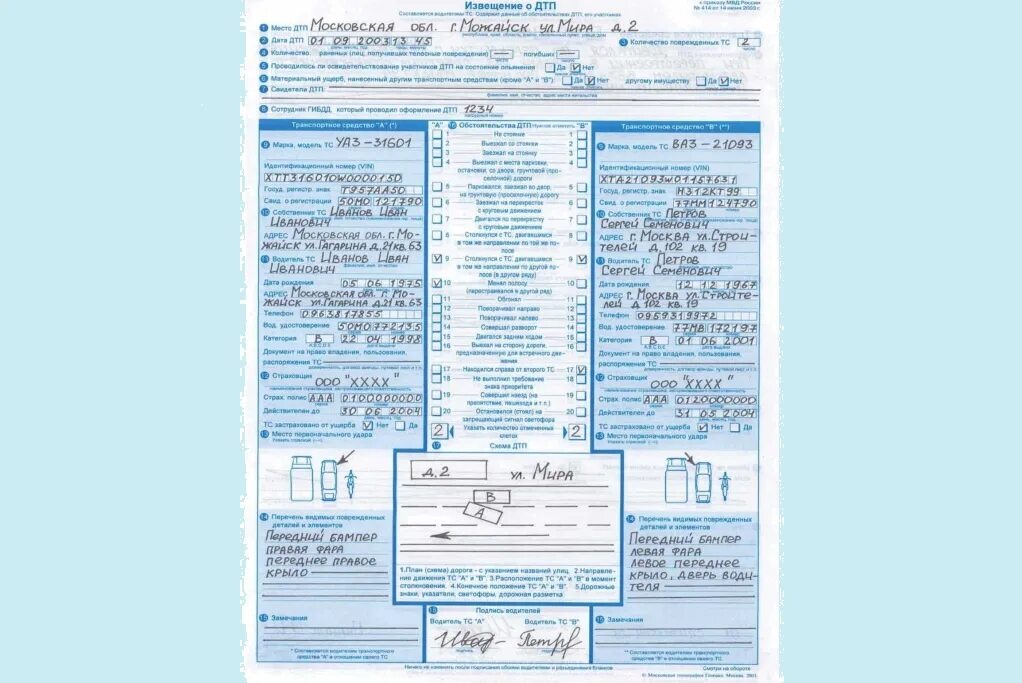 Извещение о ДТП
к приказу МВД России
№ 414 от 14 июня 2003 г.
Составляется водителями ТС. Содержит данные об обстоятельствах ДТП, его участниках
1 Место ДТП Московская обл. г. Можайск ул. Мира д. 2
2 Дата ДТП 01 09 2003 13 45
3 Количество поврежденных ТС 2
4 Количество раненых (лиц, получивших телесные повреждения) — погибших —
5 Проводилось ли освидетельствование участников ДТП на состояние опьянения Да Нет
6 Материальный ущерб, нанесенный другим транспортным средствам (кроме "А" и "В") Да Нет другому имуществу Да Нет
7 Свидетели ДТП:
фамилия, имя, отчество, адрес места жительства
8 Сотрудник ГИБДД, который проводил оформление ДТП 1234
нагрудный номер
Транспортное средство "А" (*)
9 Марка, модель ТС УАЗ-31601
Идентификационный номер (VIN)
XTT316010W0000150
Госуд. регистр. знак Т957АА50
Свид. о регистрации 50МО 121790
10 Собственник ТС Иванов Иван
Иванович
АДРЕС Московская обл. г. Мо-
жайск ул. Гагарина д. 21 кв. 63
11 Водитель ТС Иванов Иван
Иванович
Дата рождения 05 06 1975
АДРЕС Московская обл. г. Мо-
жайск ул. Гагарина д. 21 кв. 63
Телефон 0963817855
Вод. удостоверение 50МО 772135
Категория В 22 04 1998
Документ на право владения, пользования,
распоряжения ТС
12 Страховщик
ООО "ХХХХ"
Страх. полис ААА 0100000000
Действителен до 30 06 2004
ТС застраховано от ущерба Нет Да
13 Место первоначального удара
14 Перечень видимых поврежденных
деталей и элементов
Передний бампер
правая фара
переднее правое
крыло
15 Замечания
* Составляется водителем транспортного
средства "А" в отношении своего ТС
"А" 16 Обстоятельства ДТП Нужное отметить "В"
1 На стоянке 1
2 Выезжал со стоянки 2
3 Заезжал на стоянку 3
4 Выезжал с места парковки, 4
остановки, со двора, грунтовой (про-
селочной) дороги
5 Парковался, заезжал во двор, 5
на грунтовую (проселочную) дорогу
6 Заезжал на перекресток 6
с круговым движением
7 Двигался по перекрестку 7
с круговым движением
8 Столкнулся с ТС, двигавшимся 8
в том же направлении по той же по-
лосе
9 Столкнулся с ТС, двигавшимся 9
в том же направлении по другой по-
лосе (в другом ряду)
10 Менял полосу 10
(перестраивался в другой ряд)
11 Обгонял 11
12 Поворачивал направо 12
13 Поворачивал налево 13
14 Совершал разворот 14
15 Двигался задним ходом 15
16 Выехал на сторону дороги, 16
предназначенную для встречного дви-
жения
17 Находился справа от второго ТС 17
18 Не выполнил требование 18
знака приоритета
19 Совершил наезд (на 19
препятствие, пешехода и т.п.)
20 Остановился (стоял) на 20
запрещающий сигнал светофора
2 Указать количество отмеченных 2
клеток
17 Схема ДТП
д. 2 ул. Мира
В
А
1.План (схема) дороги - с указанием названий улиц. 2.Направле-
ние движения ТС "А" и "В". 3.Расположение ТС "А" и "В" в момент
столкновения. 4.Конечное положение ТС "А" и "В". 5.Дорожные
знаки, указатели, светофоры, дорожная разметка
18 Подпись водителей
Водитель ТС "А" Водитель ТС "В"
Ничего не изменять после подписания обоими водителями и разъединения бланков
Транспортное средство "В" (**)
9 Марка, модель ТС ВАЗ-21093
Идентификационный номер (VIN)
XTA21093W01157631
Госуд. регистр. знак Н312КТ99
Свид. о регистрации 77ММ124790
10 Собственник ТС Петров
Сергей Семенович
АДРЕС г. Москва ул. Строи-
телей д. 102 кв. 19
11 Водитель ТС Петров
Сергей Семенович
Дата рождения 12 12 1967
АДРЕС г. Москва ул. Строите-
лей д. 102 кв. 19
Телефон 0959319972
Вод. удостоверение 77МВ 172197
Категория В 01 06 2001
Документ на право владения, пользования,
распоряжения ТС
12 Страховщик
ООО "ХХХХ"
Страх. полис ААА 0120000000
Действителен до 31 05 2004
ТС застраховано от ущерба Нет Да
13 Место первоначального удара
14 Перечень видимых поврежденных
деталей и элементов
Передний бампер
левая фара
левое переднее
крыло, дверь води-
теля
15 Замечания
** Составляется водителем транспортного
средства "В" в отношении своего ТС
Смотри на обороте